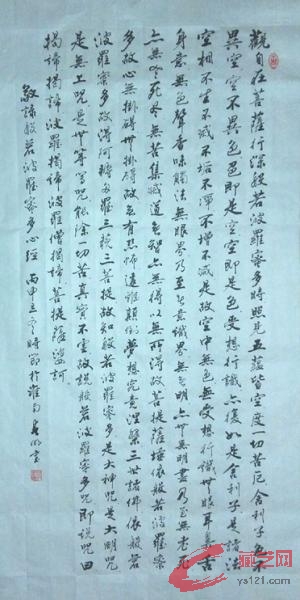 觀自在菩薩行深般若波羅蜜多時照見五蘊皆空度一切苦厄舍利子色不
異空空不異色色即是空空即是色受想行識亦復如是舍利子是諸法
空相不生不滅不垢不淨不增不減是故空中無色無受想行識無眼耳鼻舌
身意無色聲香味觸法無眼界乃至無意識界無無明亦無無明盡乃至無老死
亦無老死盡無苦集滅道無智亦無得以無所得故菩提薩埵依般若波羅蜜
多故心無掛碍無掛碍故無有恐怖遠離顛倒夢想究竟涅槃三世諸佛依般若
波羅蜜多故得阿耨多羅三藐三菩提故知般若波羅蜜多是大神咒是大明咒
是無上咒是無等等咒能除一切苦真實不虛故說般若波羅蜜多咒即說咒曰
揭諦揭諦波羅揭諦波羅僧揭諦菩提薩婆訶
般若波羅蜜多心經 丙申立冬時節於
藏艺网
ys121.com